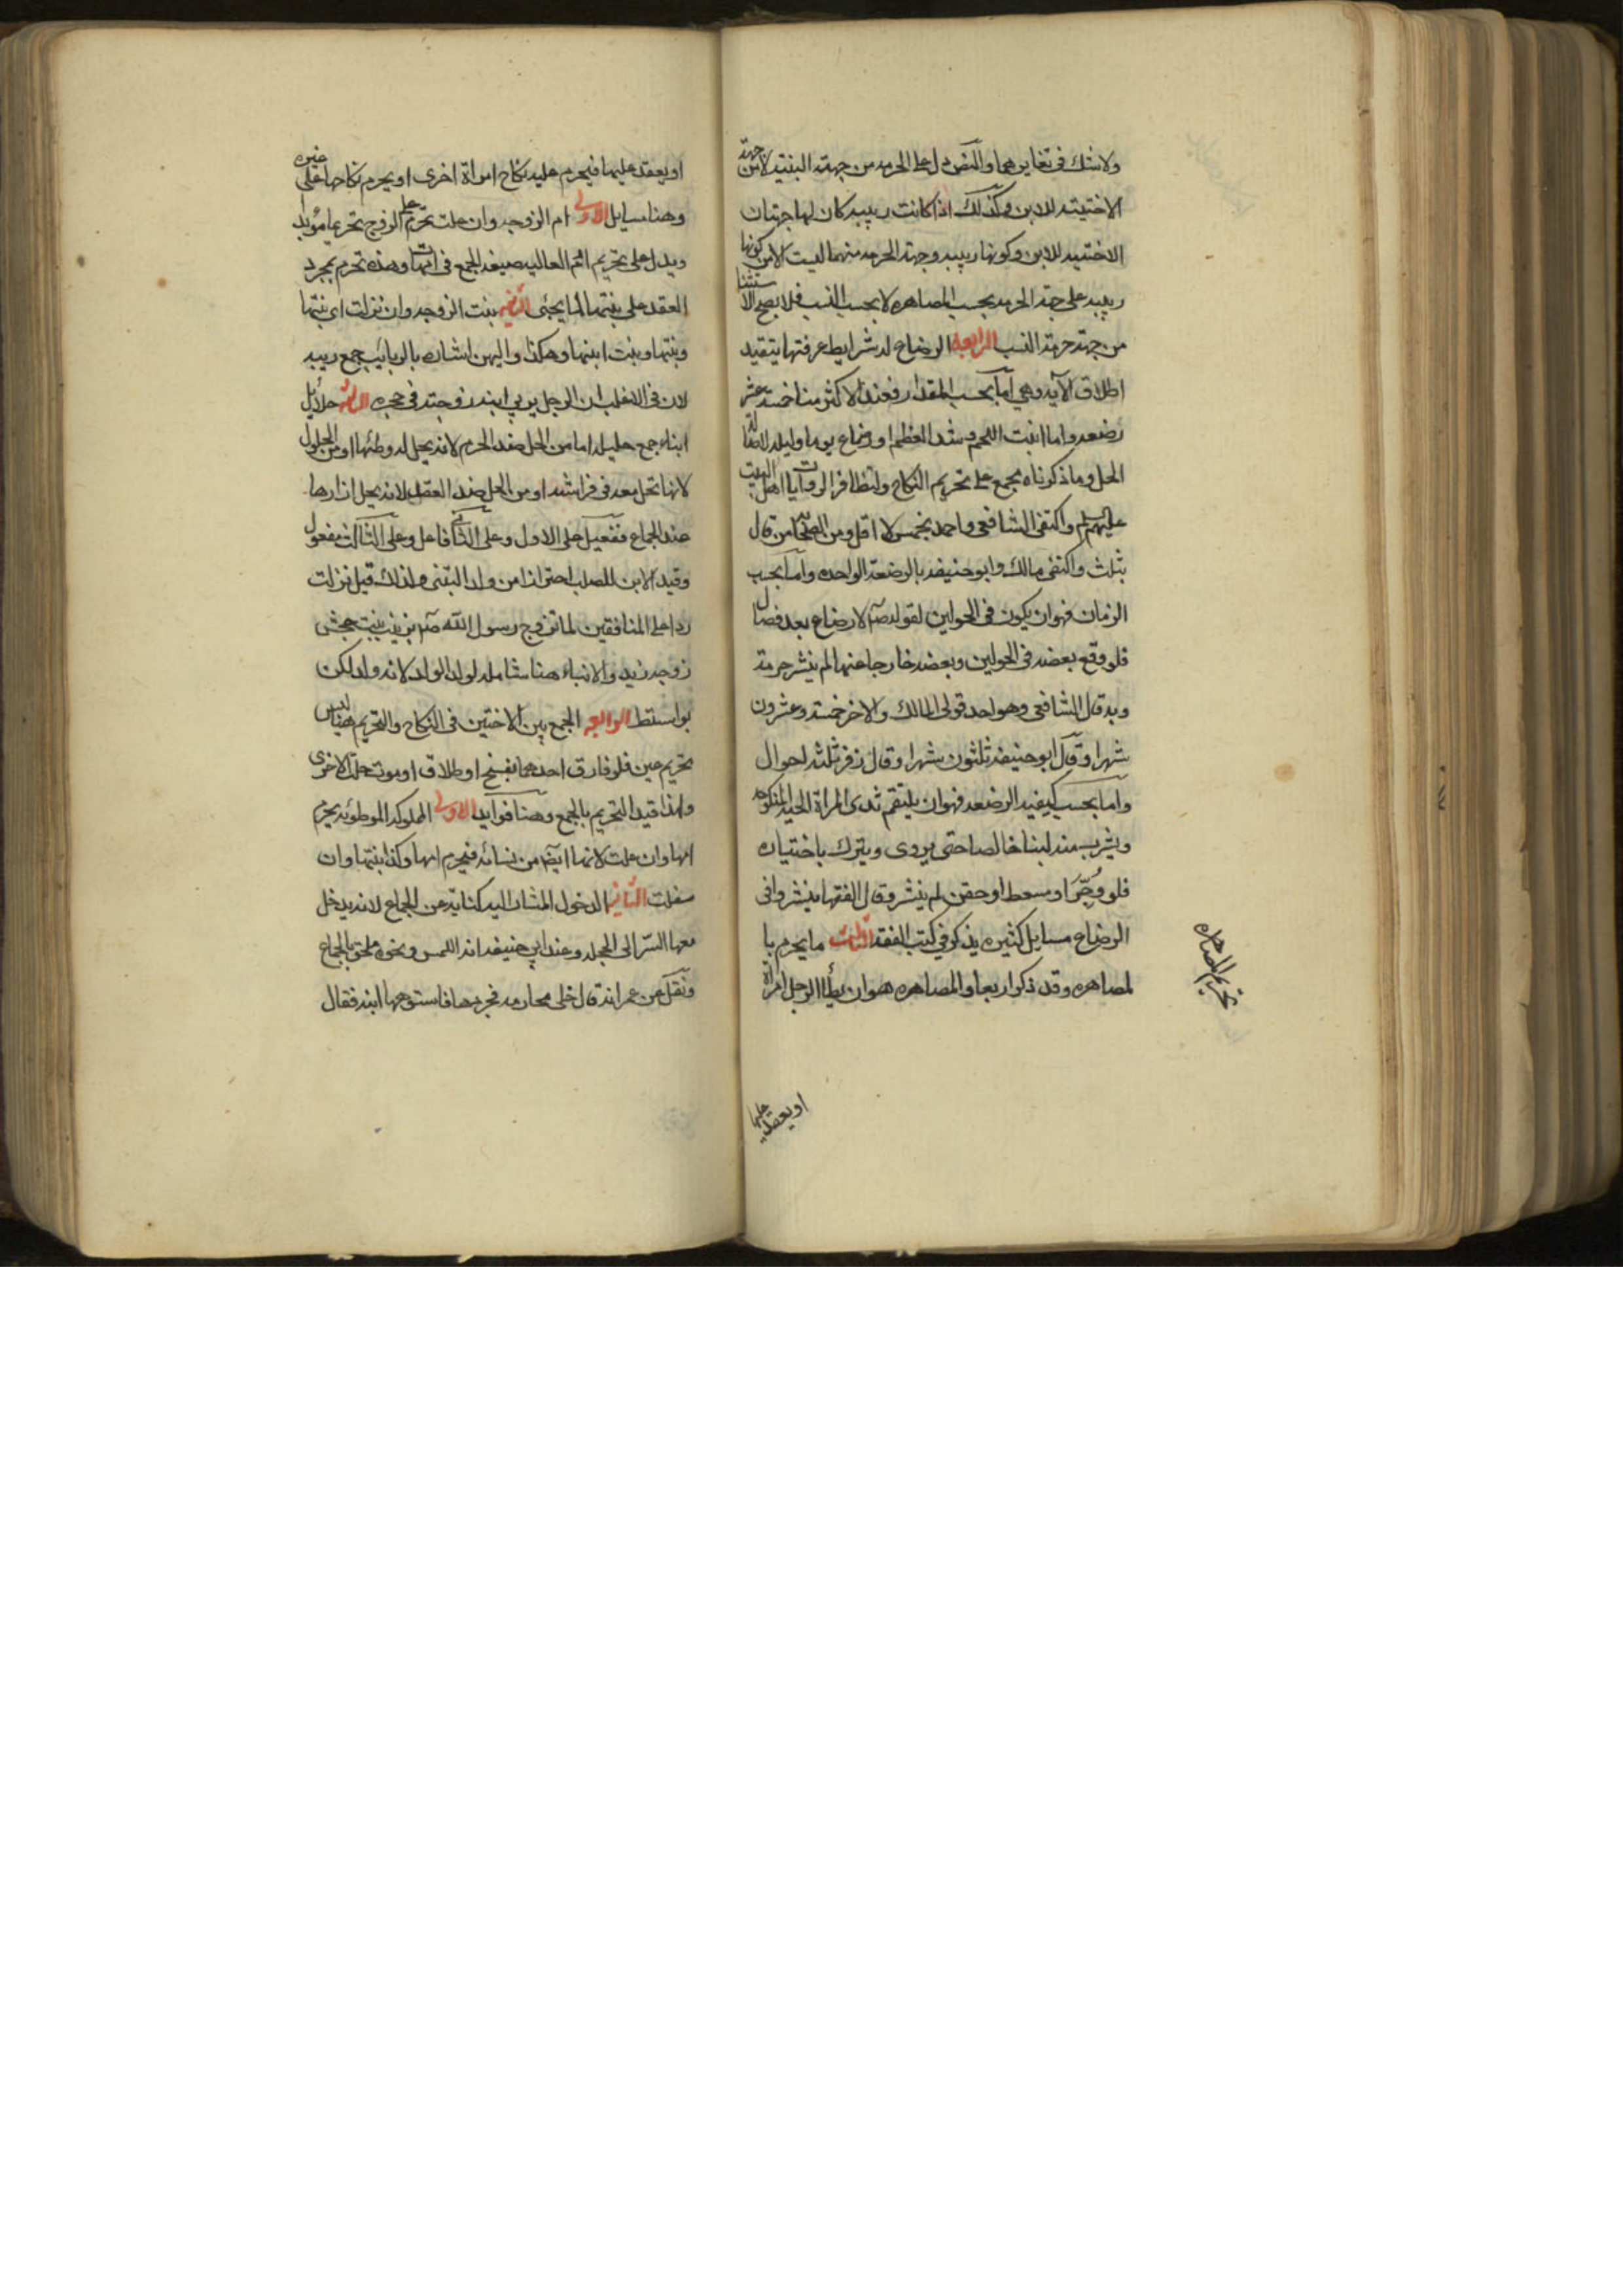 ولا شك في تغايرهما والنص دل على الحرمه من جهة البنتيه لا من جهة
الاختيته للابن وكذلك اذا كانت ربيبه كان لها جهتان
الاختيه للابن وكونها ربيبه وجهة الحرمه منهما ليست الا من كونها
ربيبه على جهة الحرمه بحسب المصاهره لا بحسب النسب فلا يصح الاستثنا
من جهة حرمة النسب الرابعه الرضاع له شرايط عرفتها يتقيد
اطلاق الآيه وهي اما بحسب المقدار فعند الاكثر منا خمسة عشر
رضعه واما انبت اللحم وشد العظم او رضاع يوم وليله لاصالة
الحل وما ذكرناه مجمع على تحريم النكاح ولتظافر الروايات اهل البيت
عليهم السلم واكتفى الشافعي واحمد بخمس لا اقل ومن الصحابه من قال
بثلث واكتفى مالك وابو حنيفه بالرضعة الواحده واما بحسب
الزمان فهو ان يكون في الحولين لقوله ص لا رضاع بعد فصال
فلو وقع بعضه في الحولين وبعضه خارجا عنهما لم ينشر حرمة
وبه قال الشافعي وهو احد قولى المالك والاخر خمسة وعشرون
شهرا وقال ابو حنيفه ثلثون شهرا وقال زفر ثلثه احوال
واما بحسب كيفيه الرضعه فهو ان يلتقم ثدى المراة الحيه المنكوحه
ويشرب منه لبنا خالصا حتى يروى ويترك باختياره
فلو وُجّرَ او سعط او حقن لم ينشر وقال الفقها ينشر وفى
الرضاع مسايل كثيره يذكر في كتب الفقه الثالث ما يحرم با
لمصاهره وقد ذكر اربعا والمصاهره هو ان يطأ الرجل امراة
تحريم المصاهره
او يعقد عليها
او يعقد عليها فيحرم عليه نكاح امراة اخرى او يحرم نكاحها على غيره
وهنا مسايل الاولى ام الزوجه وان علت تحرم على الزوج تحريما مؤبد
ويدل على تحريم الام العاليه صيغه الجمع في امهات وهذه تحرم بمجرد
العقد على بنتها لما يجئى الثانيه بنت الزوجه وان نزلت اى بنتها
وبنتها وبنت ابنها وهكذا واليهن اشاره بالربائب جمع ربيبه
لان في الاغلب ان الرجل يربي ابنه زوجته في حجره الثالثه حلائل
ابناء جمع حليله اما من الحل ضد الحرم لانه يحل له وطئها او من الحلول
لانها تحل معه فى فراشه او من الحل ضد العقد لانه يحل ازارها
عند الجماع ففعيل على الاول وعلى الثانى فاعل وعلى الثالث مفعول
وقيد الابن للصلب احترازا من ولد التبنى ولذلك قيل نزلت
ردا على المنافقين لما تزوج رسول الله ص بزينب بنت جحش
زوجه زيد والابناء هنا شامله لولد الولد لانه ولد لكن
بواسطه الرابعه الجمع بين الاختين فى النكاح والتحريم هنا ليس
تحريم عين فلو فارق احدهما بفسخ او طلاق او موت حلت الاخرى
ولهذا قيد التحريم بالجمع وهنا فوايد الاولى المملوكه الموطوئه يحرم
امها وان علت لانها ايضا من نسائه فيحرم امها وكذا بنتها وان
سفلت الثانيه الدخول المشار اليه كناية عن الجماع لانه يدخل
معها السّر الى الحجله وعند ابي حنيفه انه اللمس ونحوه ملحق بالجماع
ونقل عن عمر انه قال خلى محارمه فجردها فاستوهبها ابنه فقال